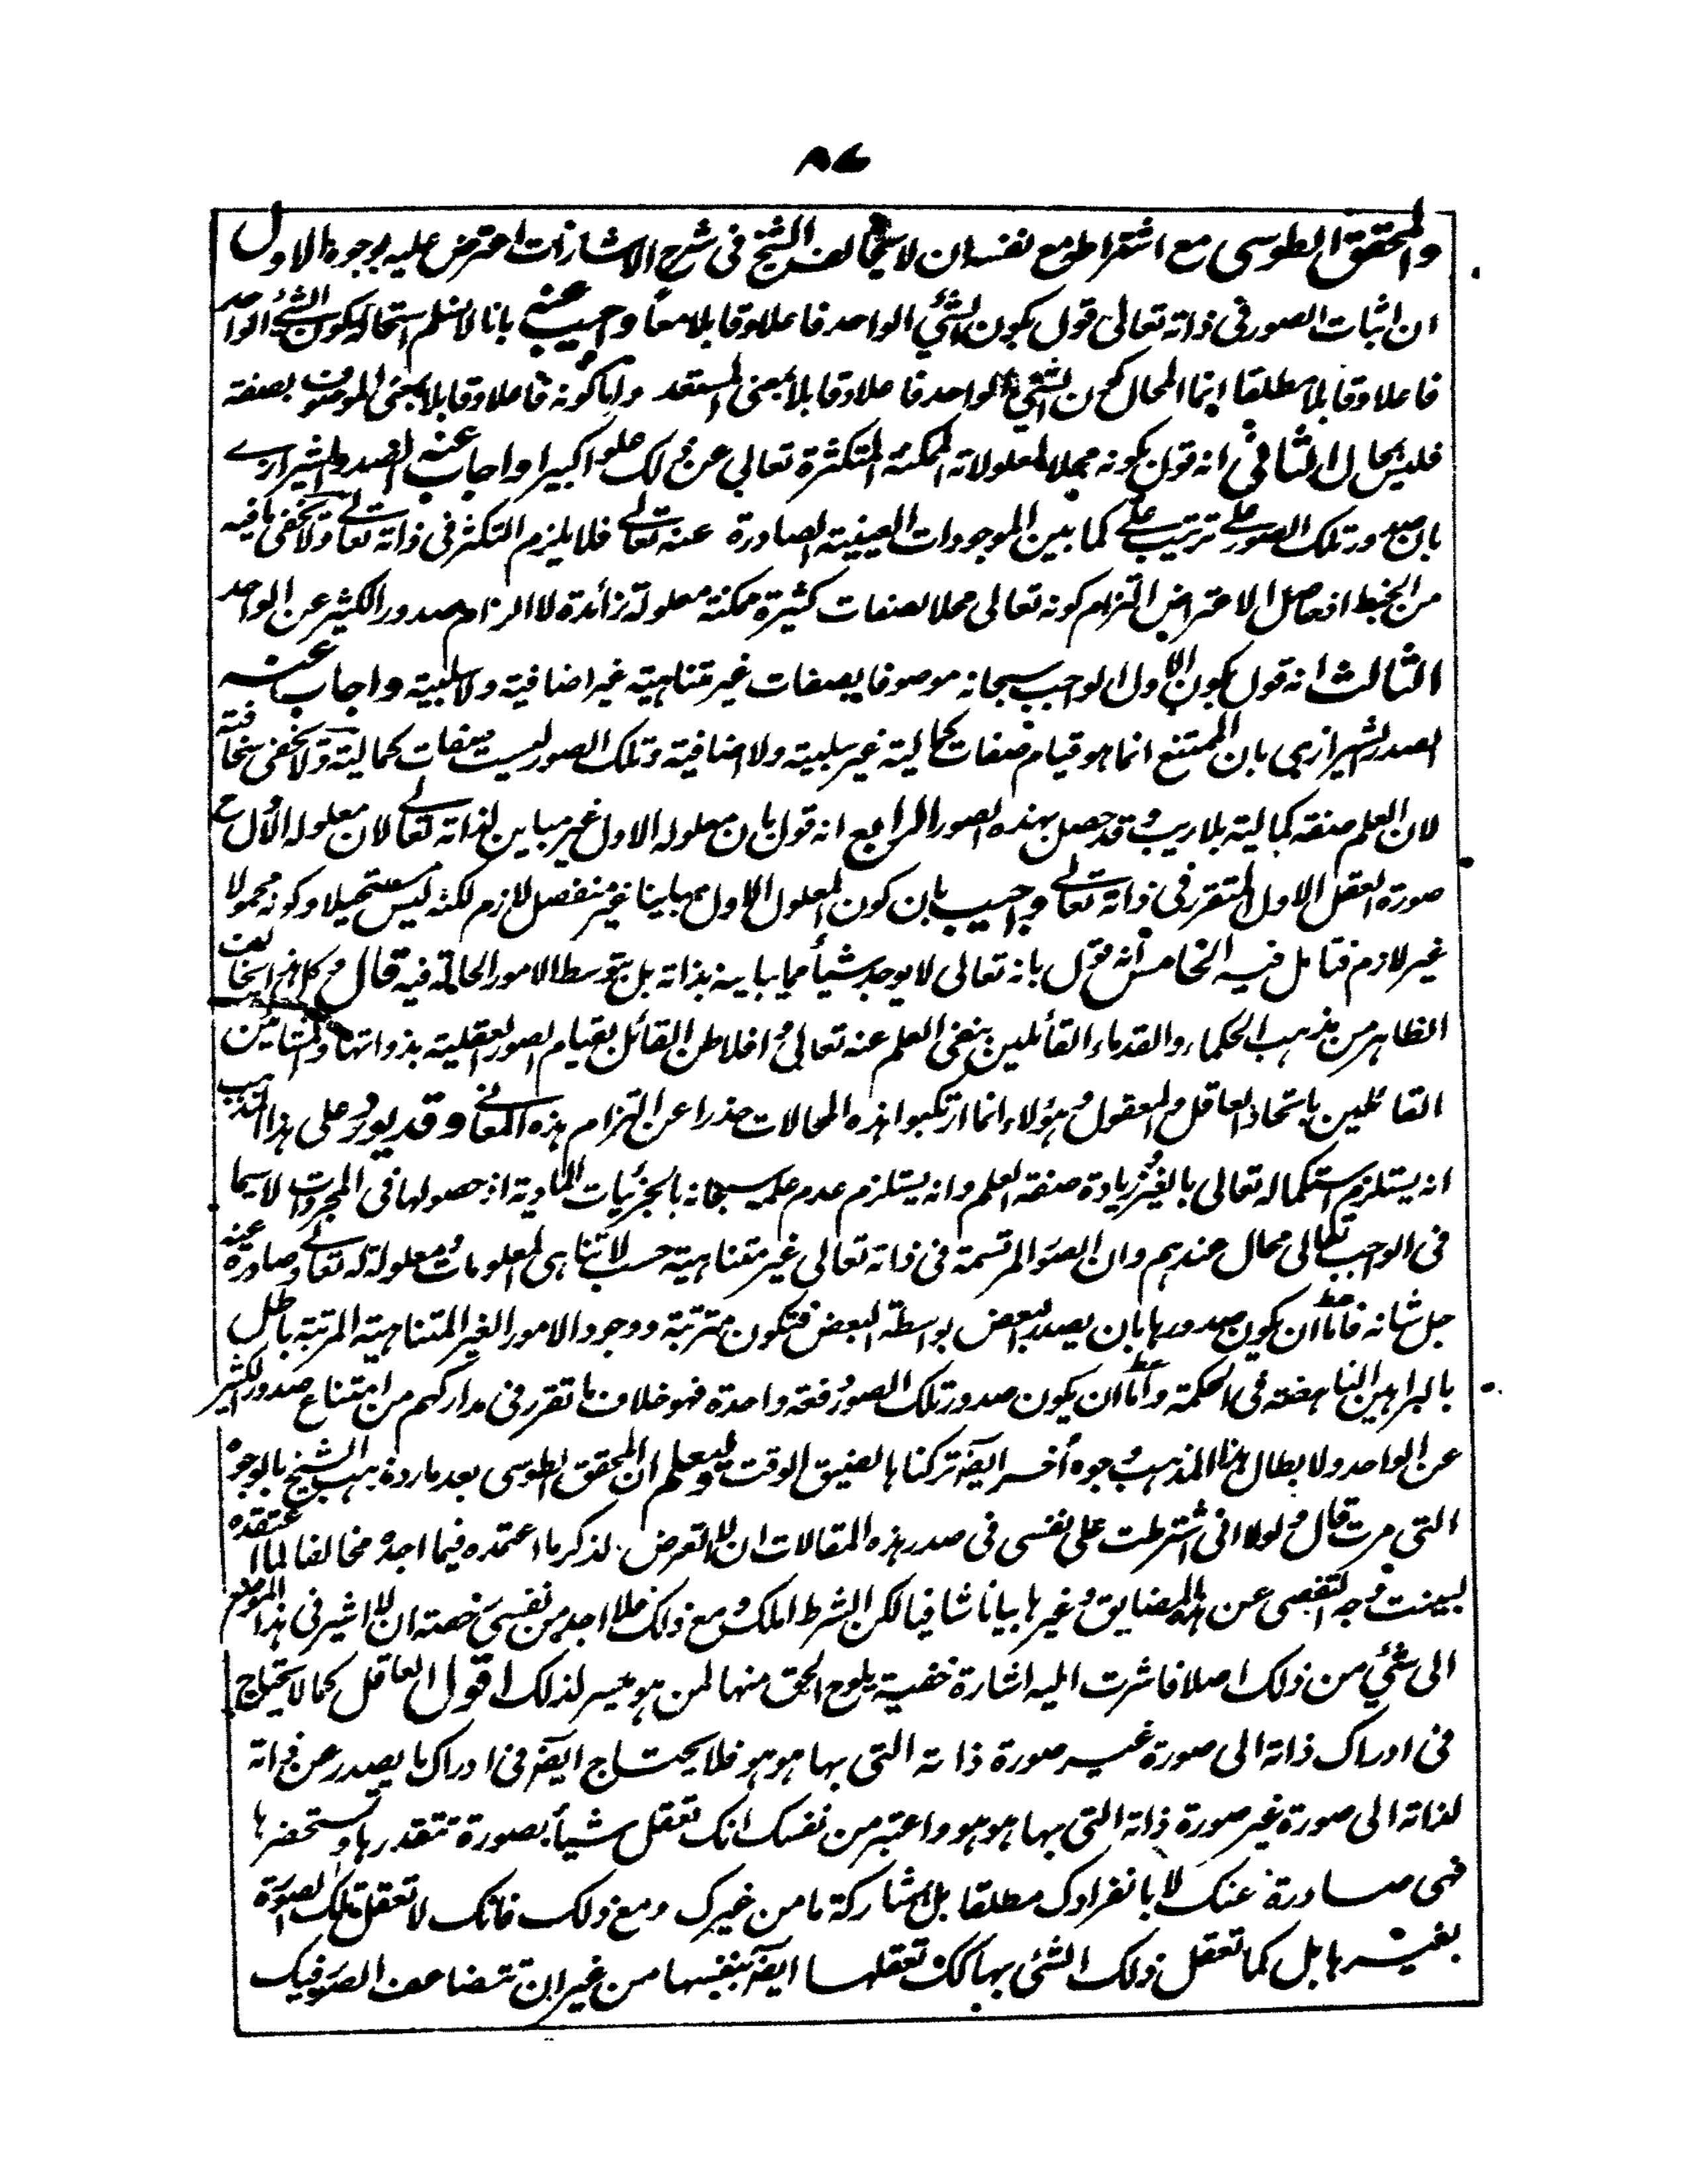 ٨٧
والمحقق الطوسى مع اشتراطه مع نفسه ان لا يخالف الشيخ فى شرح الاشارات اعترض عليه بوجوه الاول
ان اثبات الصور فى ذاته تعالى قول بكون الشئ الواحد فاعلا وقابلا معاً واجيب عنه بانا لا نسلم استحالة كون الشئ الواحد
فاعلا وقابلا مطلقا انما المحال كون الشئ الواحد فاعلا وقابلا بمعنى المستعد واما كونه فاعلا وقابلا بمعنى الموصوف بصفة
فليس بمحال الثانى انه قول بكونه محلا لمعلولاته الممكنة المتكثرة تعالى عن ذلك علوا كبيرا واجاب عنه الصدر الشيرازى
بان صدور تلك الصور على ترتيب على كما بين الموجودات العينية الصادرة عنه تعالى فلا يلزم التكثر فى ذاته تعالى ولا يخفى ما فيه
من الخبط اذ حاصل الاعتراض التزام كونه تعالى محلا لصفات كثيرة ممكنة معلولة زائدة لا الزام صدور الكثير عن الواحد
الثالث انه قول بكون الاول الواجب سبحانه موصوفا بصفات غير متناهية غير اضافية ولا سلبية واجاب عنه
الصدر الشيرازى بان الممتنع انما هو قيام صفات كمالية غير سلبية ولا اضافية وتلك الصور ليست صفات كمالية ولا يخفى سخافته
لان العلم صفة كمالية بلا ريب وقد حصل بهذه الصور الرابع انه قول بان معلوله الاول غير مباين لذاته تعالى لان معلوله الاول ح
صورة العقل الاول المتقرر فى ذاته تعالى واجيب بان كون المعلول الاول مباينا غير منفصل لازم لكنه ليس مستحيلا وكونه محمولا
غير لازم فتامل فيه الخامس انه قول بانه تعالى لا يوجد شيأ مما يباينه بذاته بل بتوسط الامور الحالة فيه قال وكل هذا يخالف
الظاهر من مذهب الحكماء والقدماء القائلين بنفى العلم عنه تعالى وافلاطن القائل بقيام الصور العقلية بذواتها والمشائين
القائلين باتحاد العاقل والمعقول وهؤلاء انما ارتكبوا هذه المحالات حذرا عن التزام هذه المعانى وقد يورد على هذا المذهب
انه يستلزم استكماله تعالى بالغير وزيادة صفة العلم وانه يستلزم عدم علمه سبحانه بالجزئيات المادية اذ حصولها فى المجردات لا سيما
فى الواجب تعالى محال عندهم وان الصور المرتسمة فى ذاته تعالى غير متناهية حسب لا تناهى المعلومات ومعلولة له تعالى وصادرة عنه
جل شانه فاما ان يكون صدورها بان يصدر البعض بواسطة البعض فتكون مترتبة ووجود الامور الغير المتناهية المرتبة باطل
بالبراهين الناهضة فى الحكمة واما ان يكون صدور تلك الصور دفعة واحدة فهو خلاف ما تقرر فى مداركهم من امتناع صدور الكثير
عن الواحد ولابطال هذا المذهب وجوه أخر ايضا تركناها لضيق الوقت وليعلم ان المحقق الطوسى بعد ما رد مذهب الشيخ بالوجوه
التى مرت قال ولولا انى اشترطت على نفسى فى صدر هذه المقالات ان لا اتعرض لذكر ما اعتمده فيما اجده مخالفا لما اعتقده
لبينت وجه التفصى عن هذه المضايق وغيرها بيانا شافيا لكن الشرط املك ومع ذلك فلا اجد من نفسى رخصة ان لا اشير فى هذا الموضع
الى شئ من ذلك اصلا فاشرت اليه اشارة خفية يلوح الحق منها لمن هو ميسر لذلك اقول العاقل كما لا يحتاج
فى ادراك ذاته الى صورة غير صورة ذاته التى بها هو هو فلا يحتاج ايضا فى ادراك ما يصدر عن ذاته
لذاته الى صورة غير صورة ذاته التى بها هو هو واعتبر من نفسك انك تعقل شيأ بصورة تتقدرها وتستحضرها
فهى صادرة عنك لا بانفرادك مطلقا بل بمشاركة ما من غيرك ومع ذلك فانك لا تعقل تلك الصورة
بغيرها بل كما تعقل ذلك الشئ بها كك تعقلها ايضا بنفسها من غير ان تتضاعف الصور فيك